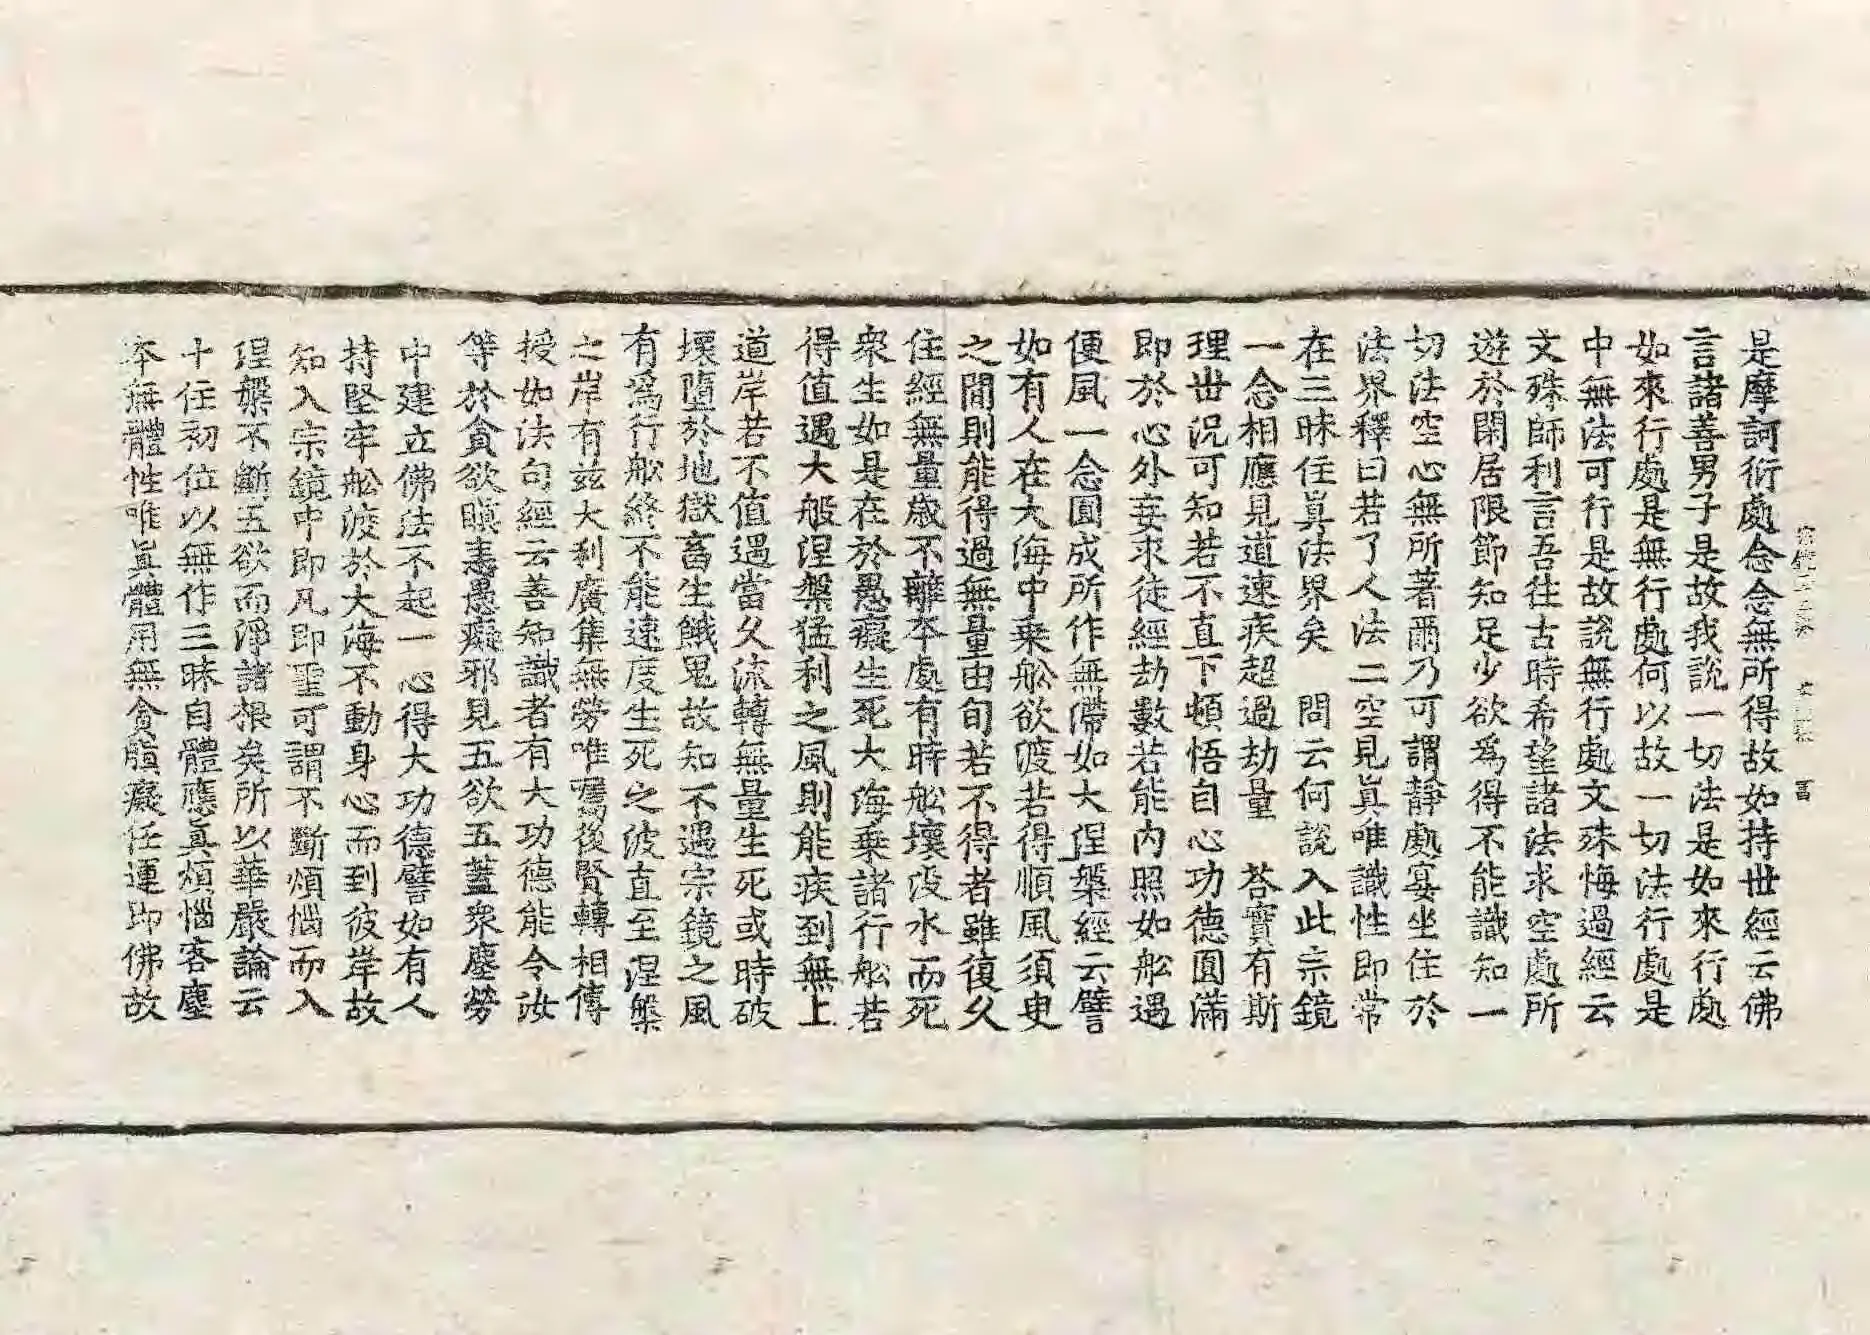 是摩訶衍處念念無所得故如持世經云佛
言諸善男子是故我說一切法是如來行處
如來行處是無行處何以故一切法行處是
中無法可行是故說無行處文殊悔過經云
文殊師利言吾往古時希望諸法求空處所
遊於閑居限節知足少欲爲得不能識知一
切法空心無所著爾乃可謂靜處宴坐住於
法界釋曰若了人法二空見眞唯識性即常
在三昧住眞法界矣　問云何說入此宗鏡
一念相應見道速疾超過劫量　荅實有斯
理世況可知若不直下頓悟自心功德圓滿
即於心外妄求徒經劫數若能內照如舩遇
便風一念圓成所作無滯如大涅槃經云譬
如有人在大海中乘舩欲渡若得順風須臾
之間則能得過無量由旬若不得者雖復久
住經無量歲不離本處有時舩壞沒水而死
衆生如是在於愚癡生死大海乘諸行舩若
得值遇大般涅槃猛利之風則能疾到無上
道岸若不值遇當久流轉無量生死或時破
壞墮於地獄畜生餓鬼故知不遇宗鏡之風
有爲行舩終不能速度生死之波直至涅槃
之岸有茲大利廣集無勞唯囑後賢轉相傳
授如法句經云善知識者有大功德能令汝
等於貪欲瞋恚愚癡邪見五欲五蓋衆塵勞
中建立佛法不起一心得大功德譬如有人
持堅牢舩渡於大海不動身心而到彼岸故
知入宗鏡中即凡即聖可謂不斷煩惱而入
涅槃不斷五欲而淨諸根矣所以華嚴論云
十住初位以無作三昧自體應真煩惱客塵
本無體性唯眞體用無貪瞋癡任運即佛故